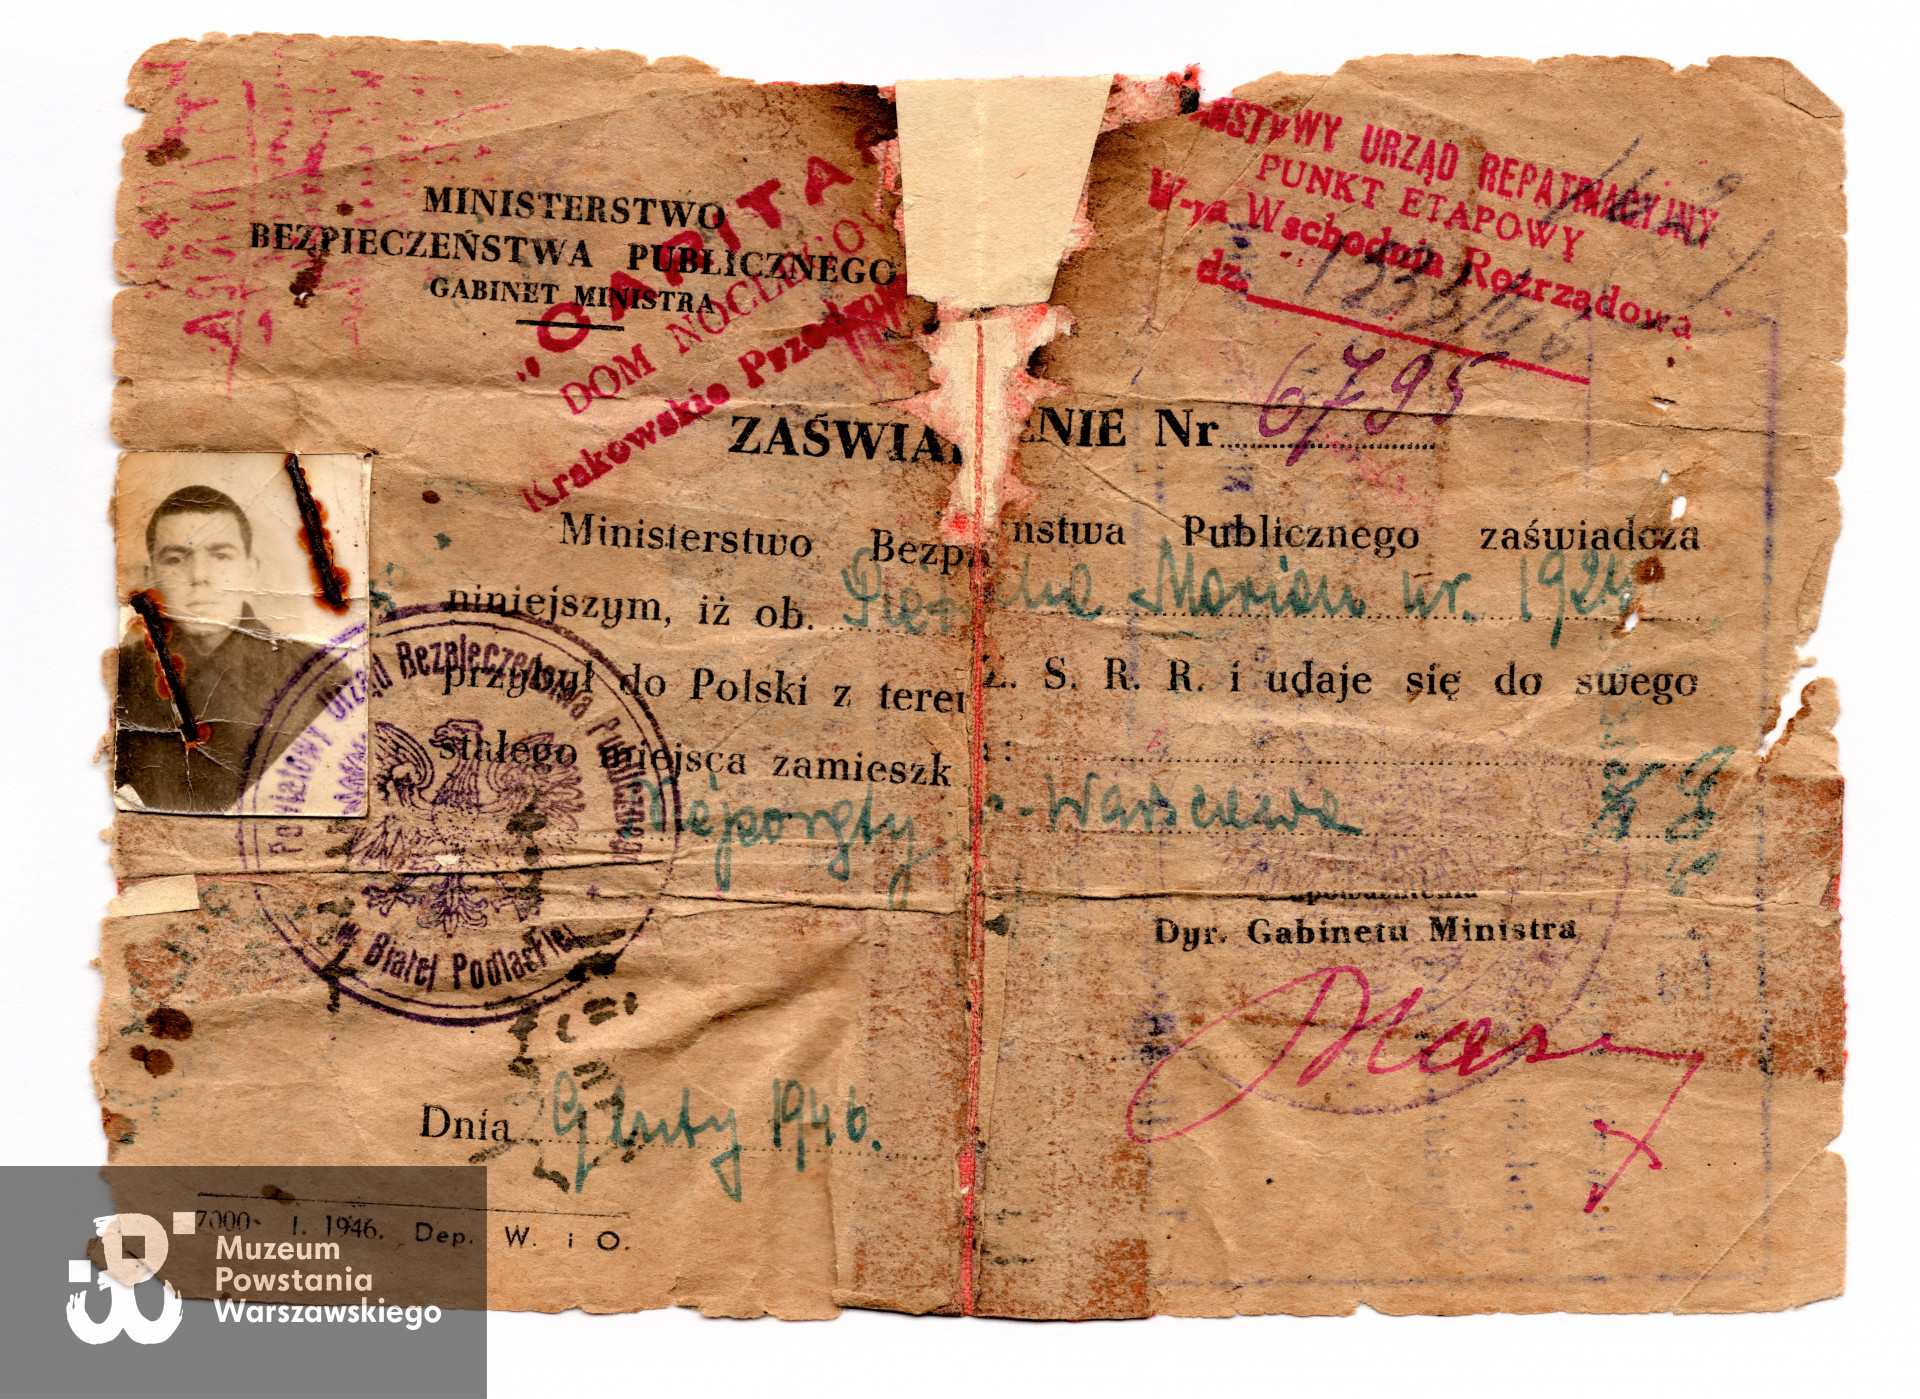 MINISTERSTWO
BEZPIECZEŃSTWA PUBLICZNEGO
GABINET MINISTRA
"CARITAS
DOM NOCLEGOW
Krakowskie Prze
STWOWY URZĄD REPATRIACYJNY
PUNKT ETAPOWY
W-wa Wschodnia Rozrządowa
dz. 1233/46
ZAŚWIA ENIE Nr 6795
Ministerstwo Bezpi ństwa Publicznego zaświadcza
niniejszym, iż ob. Marian ur. 1924
przybył do Polski z teren Z. S. R. R. i udaje się do swego
stałego miejsca zamieszk :
Warszawa
Powiatowy Urząd Bezpieczeństwa Publicznego
w Białej Podlaskiej
Dyr. Gabinetu Ministra
Dnia 9 luty 1946.
7000- I. 1946. Dep. W. i O.
Muzeum
Powstania
Warszawskiego